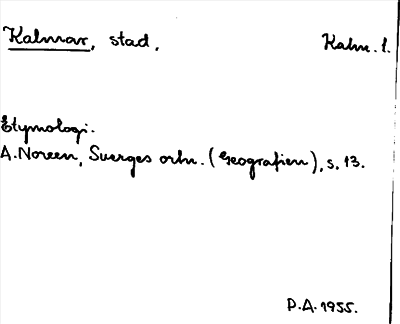 Kalmar, stad. Kalm. l.
Etymologi.
A. Noreen, Sverges ortn. (Geografien), s. 13.
P.A. 1955.